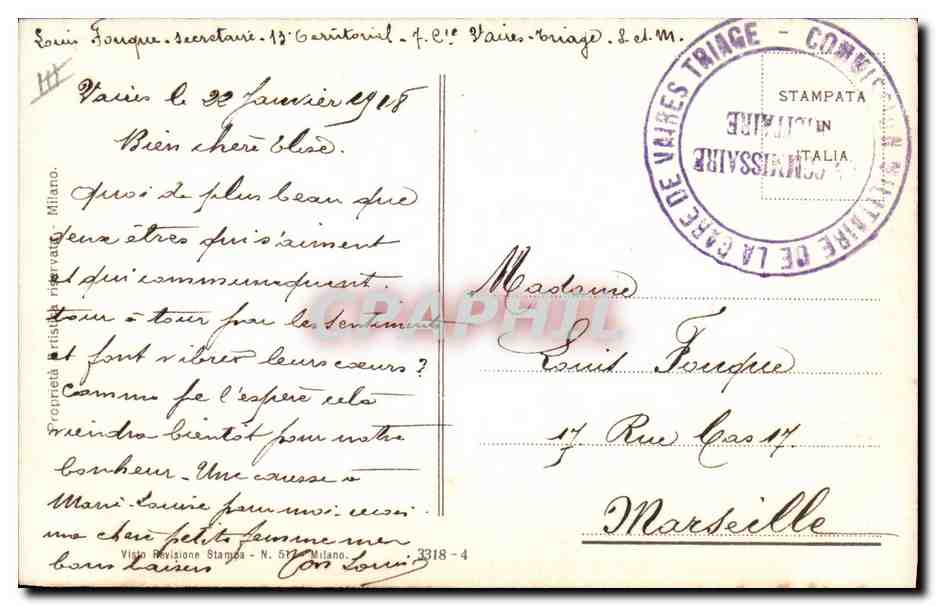 Louis Fouque - secrétaire - 13e territorial - 7. Cie Vaires-triage. S. et M.
Vaires le 22 Janvier 1918
Bien chère Elise.
Quoi de plus beau que
deux êtres qui s'aiment
et qui communiquent
tour à tour par les sentiments
et font vibrer leurs cœurs?
Comme je l'espère cela
viendra bientôt pour notre
bonheur. Une caresse à
Marie-Louise pour moi
ma chère petite femme mes
bons baisers Ton Louis
Proprietà Artistica riservata - Milano.
Visto Revisione Stampa - N. 517 - Milano.
3318 - 4
COMMISSION MILITAIRE DE LA GARE DE VAIRES TRIAGE -
COMMISSAIRE
MILITAIRE
STAMPATA
IN
ITALIA
CPARPHIL
Madame
Louis Fouque
17 Rue Cas 17.
Marseille